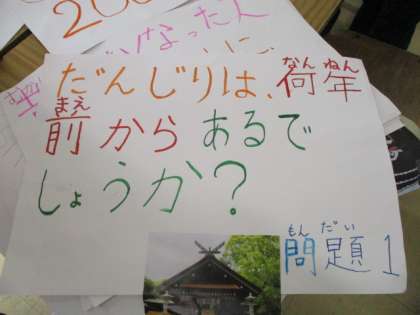 200
なった人
なんねん
だんじりは、荷年
まえ
前からあるで
しょうか?
もんだい
問題1